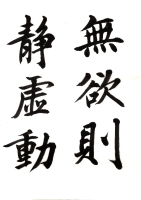 無欲則
静虚動